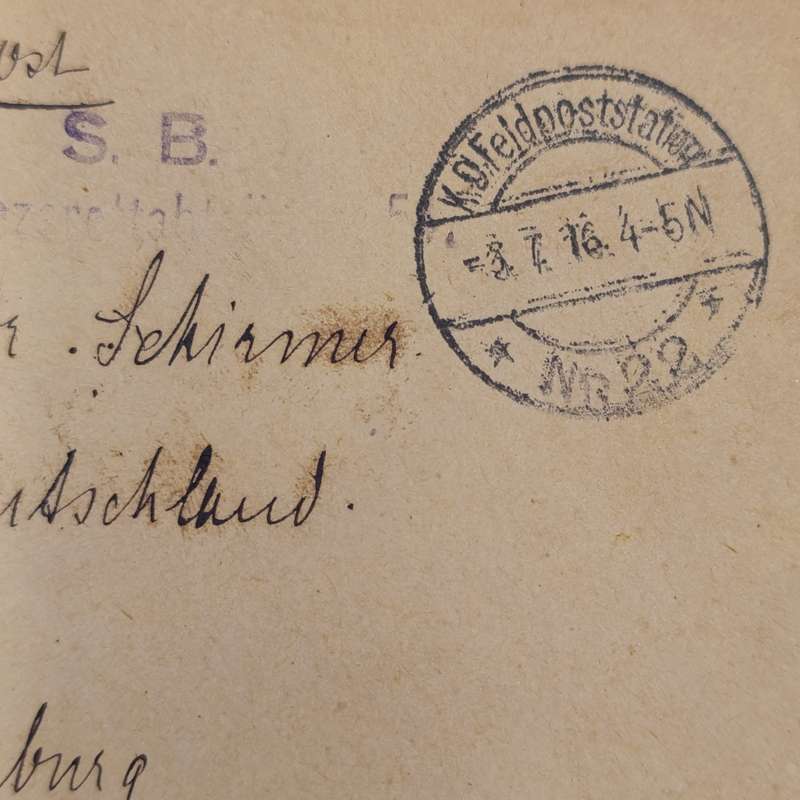 ost
S. B.
K.D.Feldpoststation
-3. 7. 16. 4-5N
* NR 22 *
Schirmer.
utschland.
burg